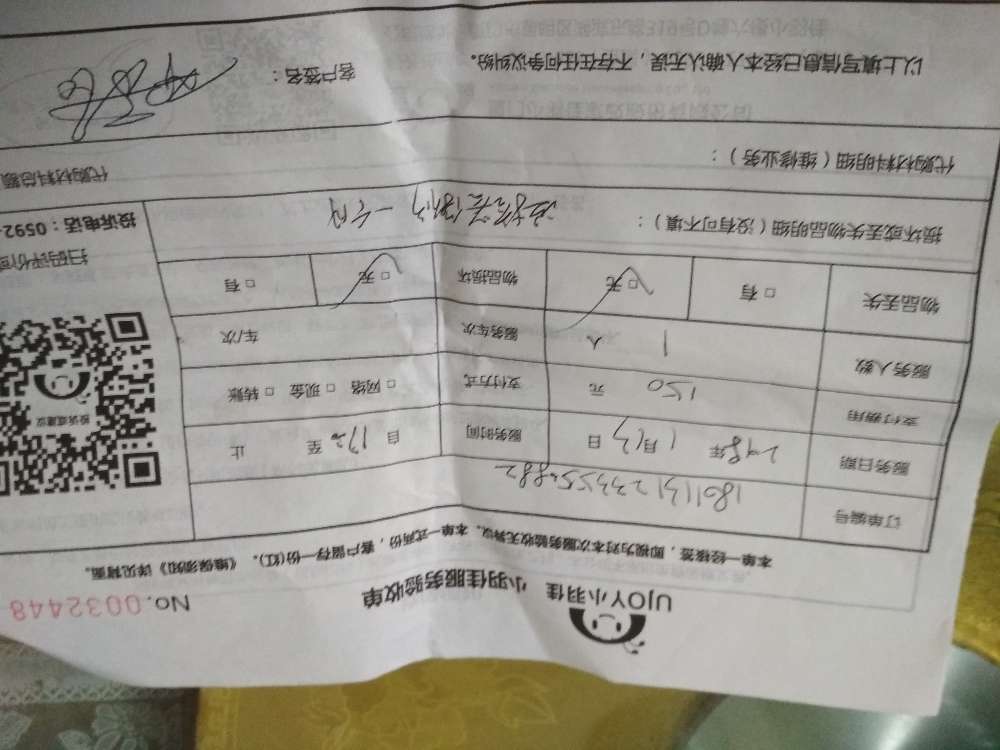 UJOY小羽佳 小羽佳服务验收单 No.0032448
本单一经核签,即视为对本次服务验收无异议。本单一式两份,客户留存一份(红)。《维保须知》详见背面。
订单编号
服务日期 年 1月13日 服务时间 自 至 1730 止
支付费用 150 元 支付方式 □ 网络 □ 现金 □ 转账
服务人数 1 人 服务车次 车/次
物品丢失 □ 有 □ 无 物品损坏 □ 无 □ 有
投诉或建议
扫码评价或
投诉电话:0592-
损坏或丢失物品明细(没有可不填):
代购材料明细(维修业务): 代购材料总额
以上填写信息已经本人确认无误,不存在任何争议纠纷。 客户签名: